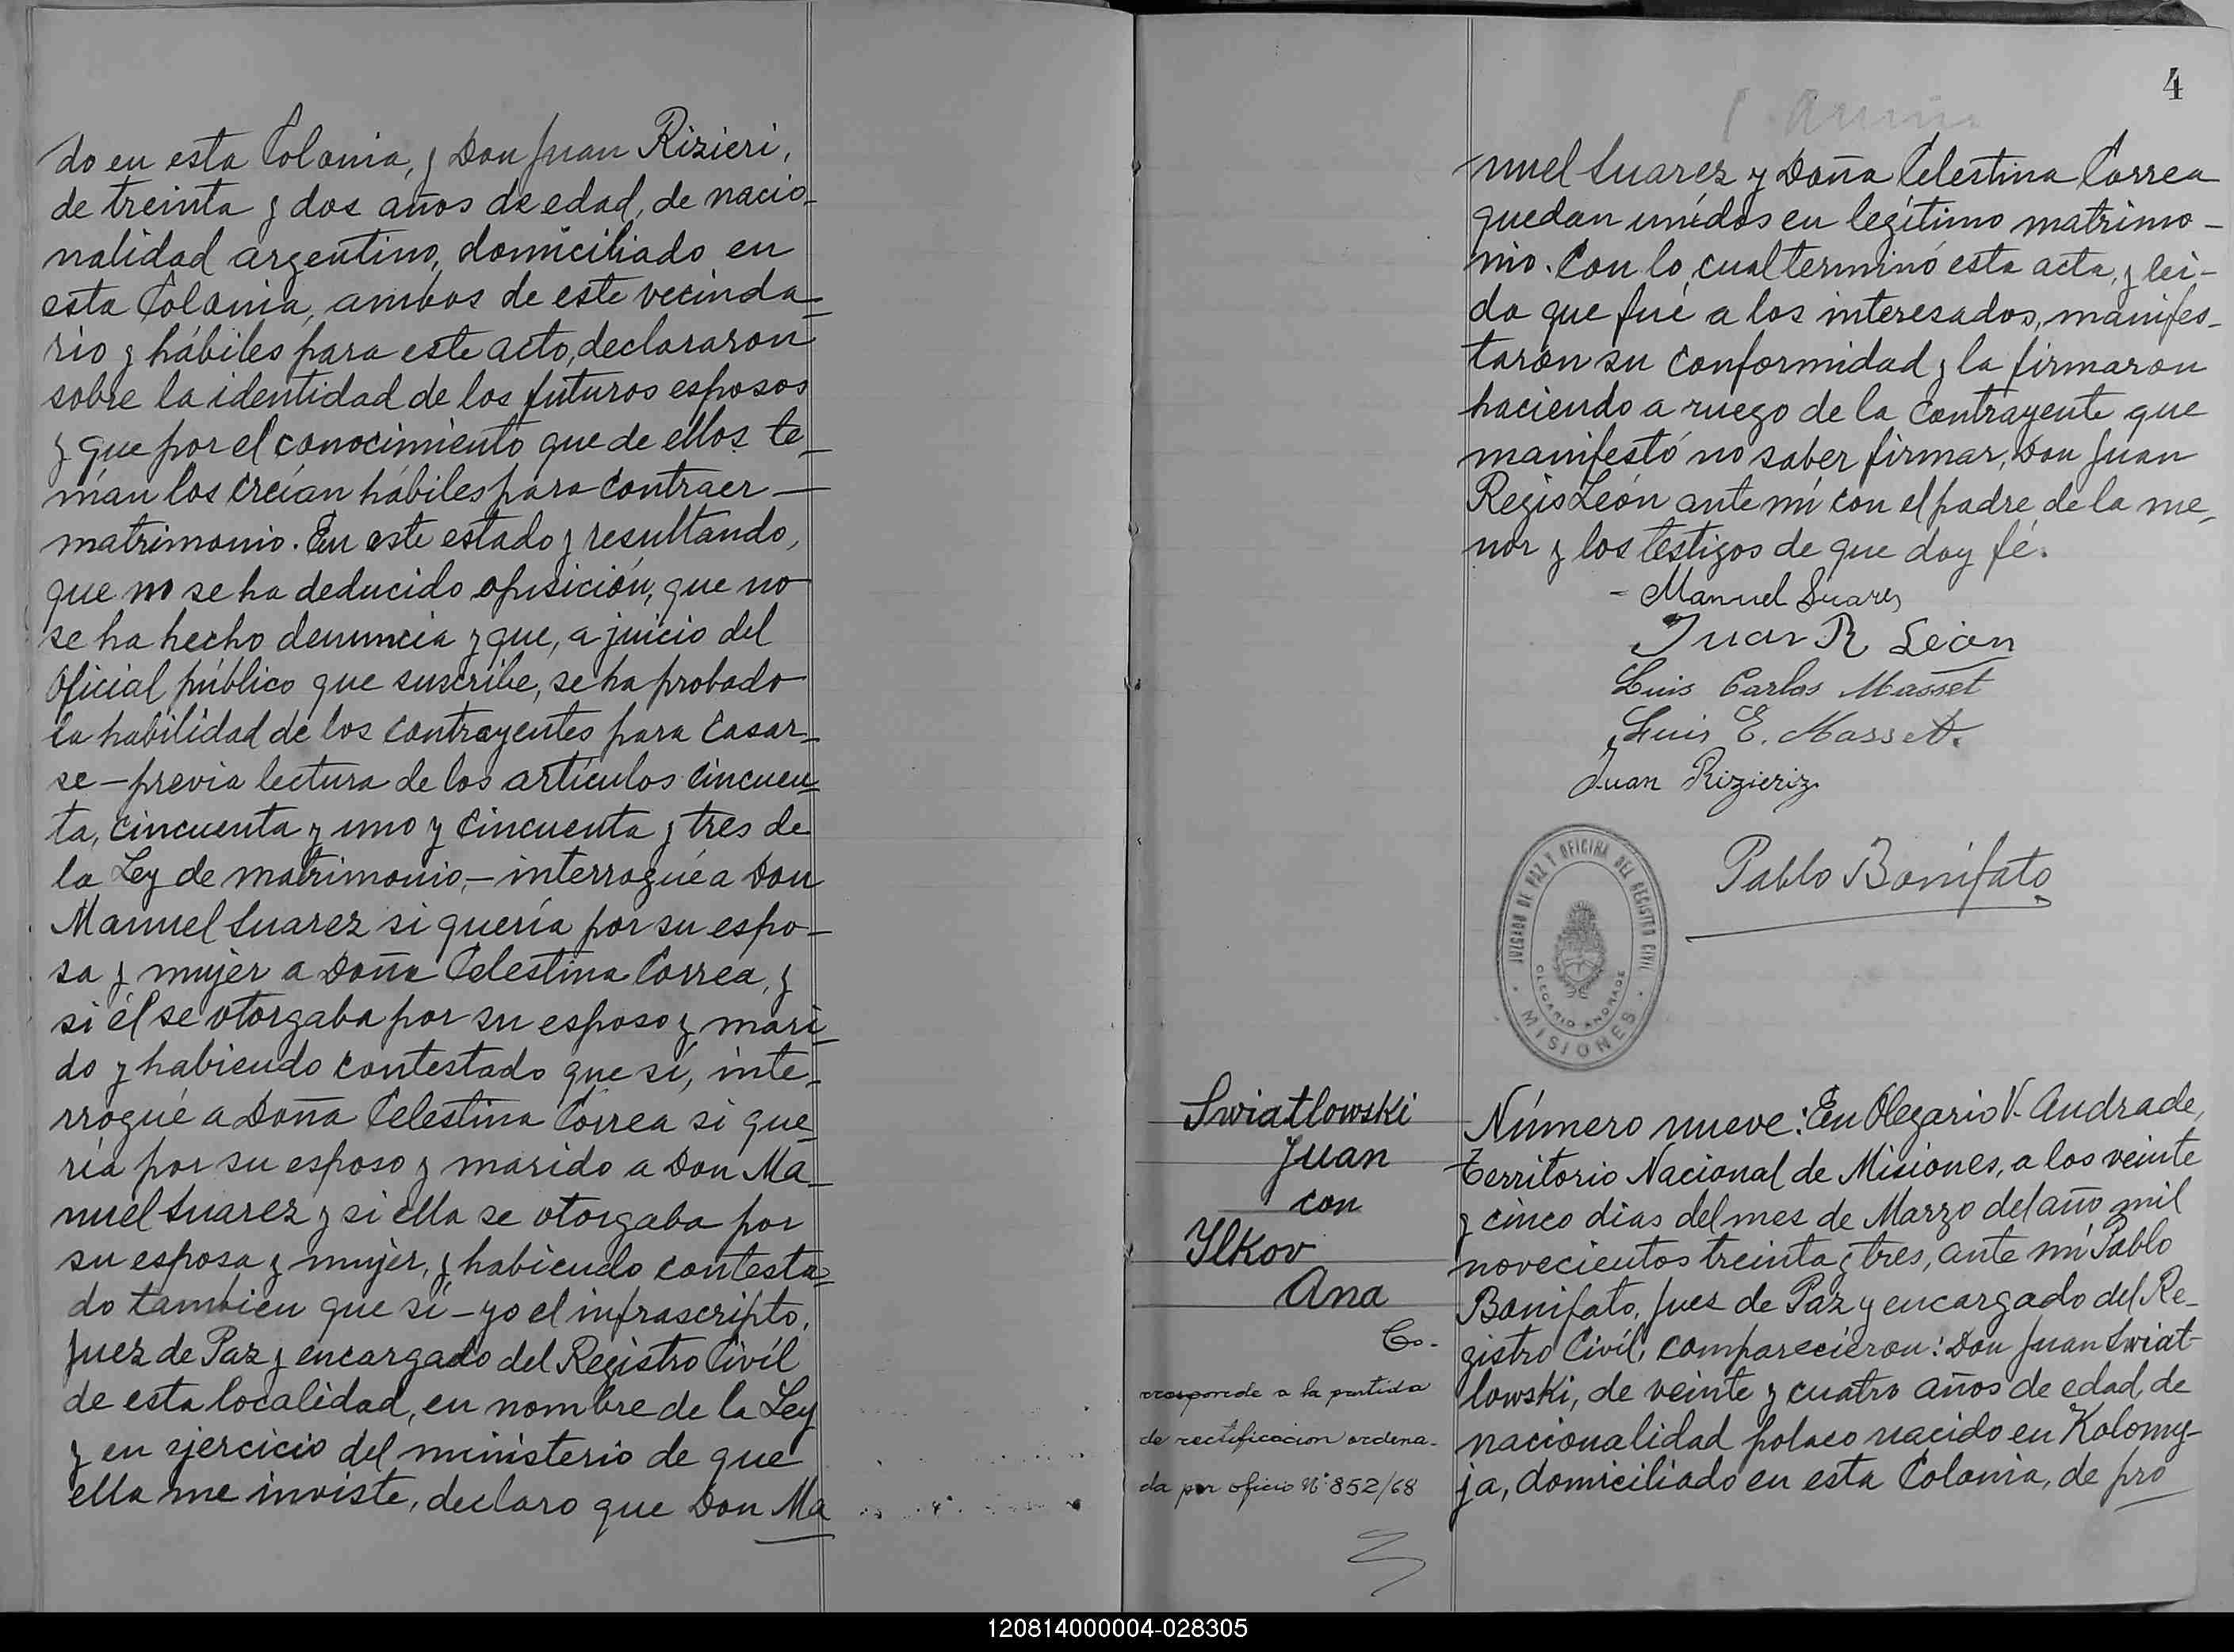 do en esta Colonia, y Don Juan Rizieri,
de treinta y dos años de edad, de nacio-
nalidad argentino, domiciliado en
esta Colonia, ambos de este vecinda-
rio y hábiles para este acto, declararon
sobre la identidad de los futuros esposos
y que por el conocimiento que de ellos te-
nían los creían hábiles para contraer —
matrimonio. En este estado y resultando,
que no se ha deducido oposición, que no
se ha hecho denuncia y que, a juicio del
Oficial público que suscribe, se ha probado
la habilidad de los contrayentes para casar-
se – previa lectura de los artículos cincuen-
ta, cincuenta y uno y cincuenta y tres de
la Ley de matrimonio, – interrogué a Don
Manuel Suarez si quería por su espo-
sa y mujer a Doña Celestina Correa, y
si él se otorgaba por su esposo y mari-
do y habiendo contestado que sí, inte-
rrogué a Doña Celestina Correa si que-
ría por su esposo y marido a Don Ma-
nuel Suarez y si ella se otorgaba por
su esposa y mujer, y habiendo contesta-
do tambien que sí – yo el infrascripto,
Juez de Paz y encargado del Registro Civíl
de esta localidad, en nombre de la Ley
y en ejercicio del ministerio de que
ella me inviste, declaro que Don Ma
4
nuel Suarez y Doña Celestina Correa
quedan unidos en legítimo matrimo-
nio. Con lo cual terminó esta acta, y leí-
da que fué a los interesados, manifes-
taron su conformidad y la firmaron
haciendo a ruego de la contrayente que
manifestó no saber firmar, Don Juan
Regis León ante mí con el padre de la me-
nor y los testigos de que doy fé.
- Manuel Suarez
Juan R León
Luis Carlos Masset
Luis E. Masset.
Juan Rizieriz
Pablo Bonifato
JUZGADO DE PAZ Y OFICINA DEL REGISTRO CIVIL
OLEGARIO ANDRADE
· MISIONES ·
Swiatlowski
Juan
con
Ylkov
Ana
Co-
rresponde a la partida
de rectificacion ordena-
da por oficio Nº 852/68
Número nueve: En Olegario V. Andrade,
Territorio Nacional de Misiones, a los veinte
y cinco dias del mes de Marzo del año mil
novecientos treinta y tres, ante mí Pablo
Bonifato, Juez de Paz y encargado del Re-
gistro Civíl, comparecieron: Don Juan Swiat-
lowski, de veinte y cuatro años de edad, de
nacionalidad polaco nacido en Kolomy-
ja, domiciliado en esta Colonia, de pro
120814000004-028305